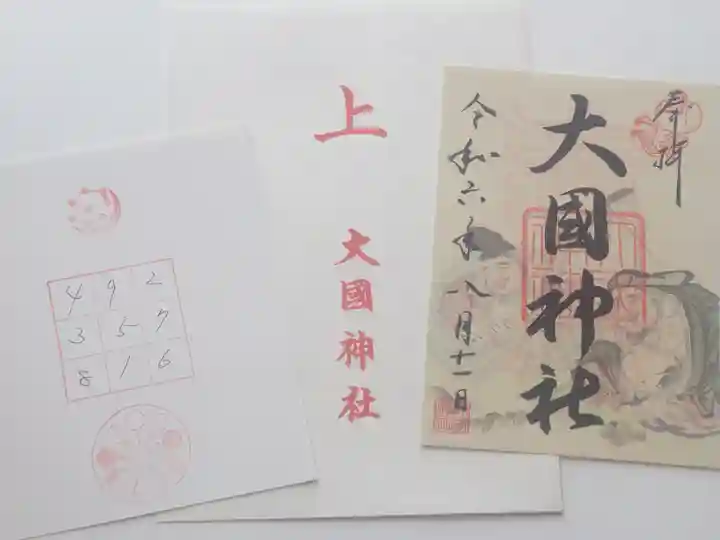 4 9 2
3 5 7
8 1 6
上
大國神社
奉拝
大國神社
令和六年八月十一日